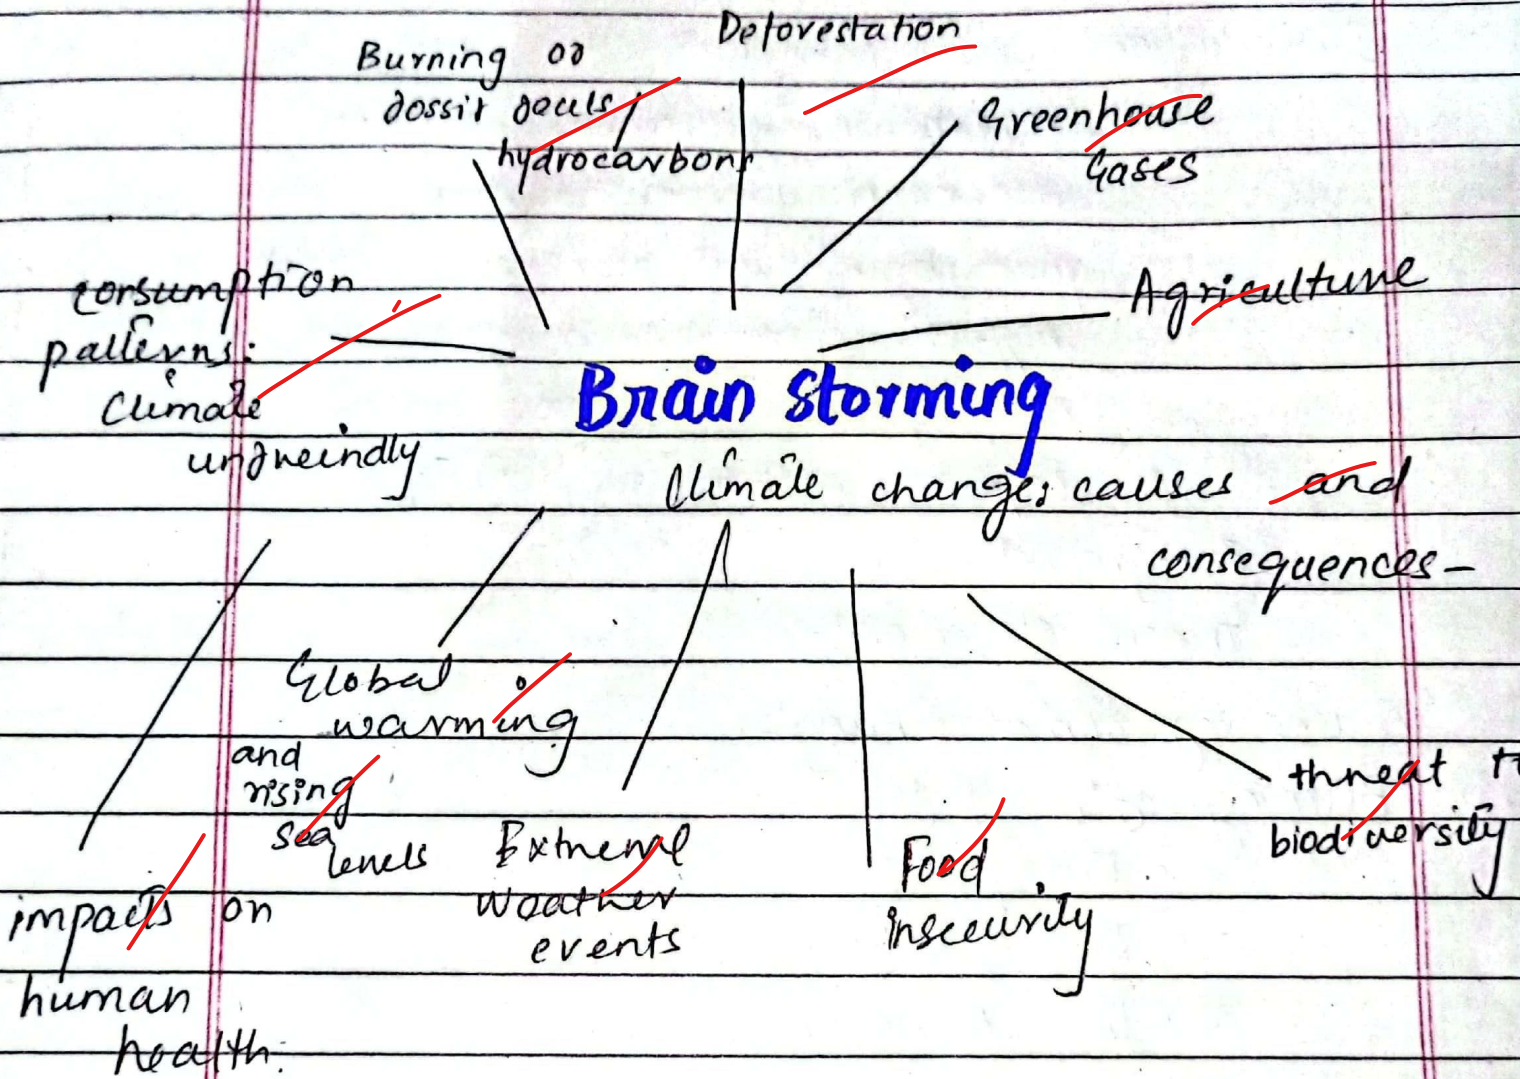 Deforestation
Burning of
fossil feuls/
hydrocarbons
Greenhouse
Gases
Agriculture
consumption
patterns:
climate
unfreindly
Brain Storming
Climate change: causes and
consequences-
Global
warming
and
rising
sea
levels
impacts on
human
health.
Extreme
weather
events
Food
insecurity
threat t
biodiversity